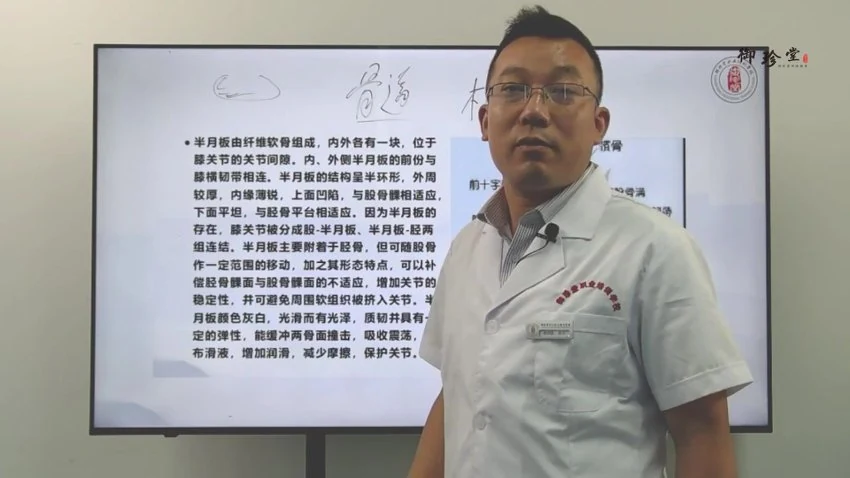 御珍堂
骨道
半月板由纤维软骨组成，内外各有一块，位于
膝关节的关节间隙。内、外侧半月板的前份与
膝横韧带相连。半月板的结构呈半环形，外周
较厚，内缘薄锐，上面凹陷，与股骨髁相适应，
下面平坦，与胫骨平台相适应。因为半月板的
存在，膝关节被分成股-半月板、半月板-胫两
组连结。半月板主要附着于胫骨，但可随股骨
作一定范围的移动，加之其形态特点，可以补
偿胫骨髁面与股骨髁面的不适应，增加关节的
稳定性，并可避免周围软组织被挤入关节。半
月板颜色灰白，光滑而有光泽，质韧并具有一
定的弹性，能缓冲两骨面撞击，吸收震荡，
布滑液，增加润滑，减少摩擦，保护关节。
髌骨
前十字
御珍堂职业培训学校